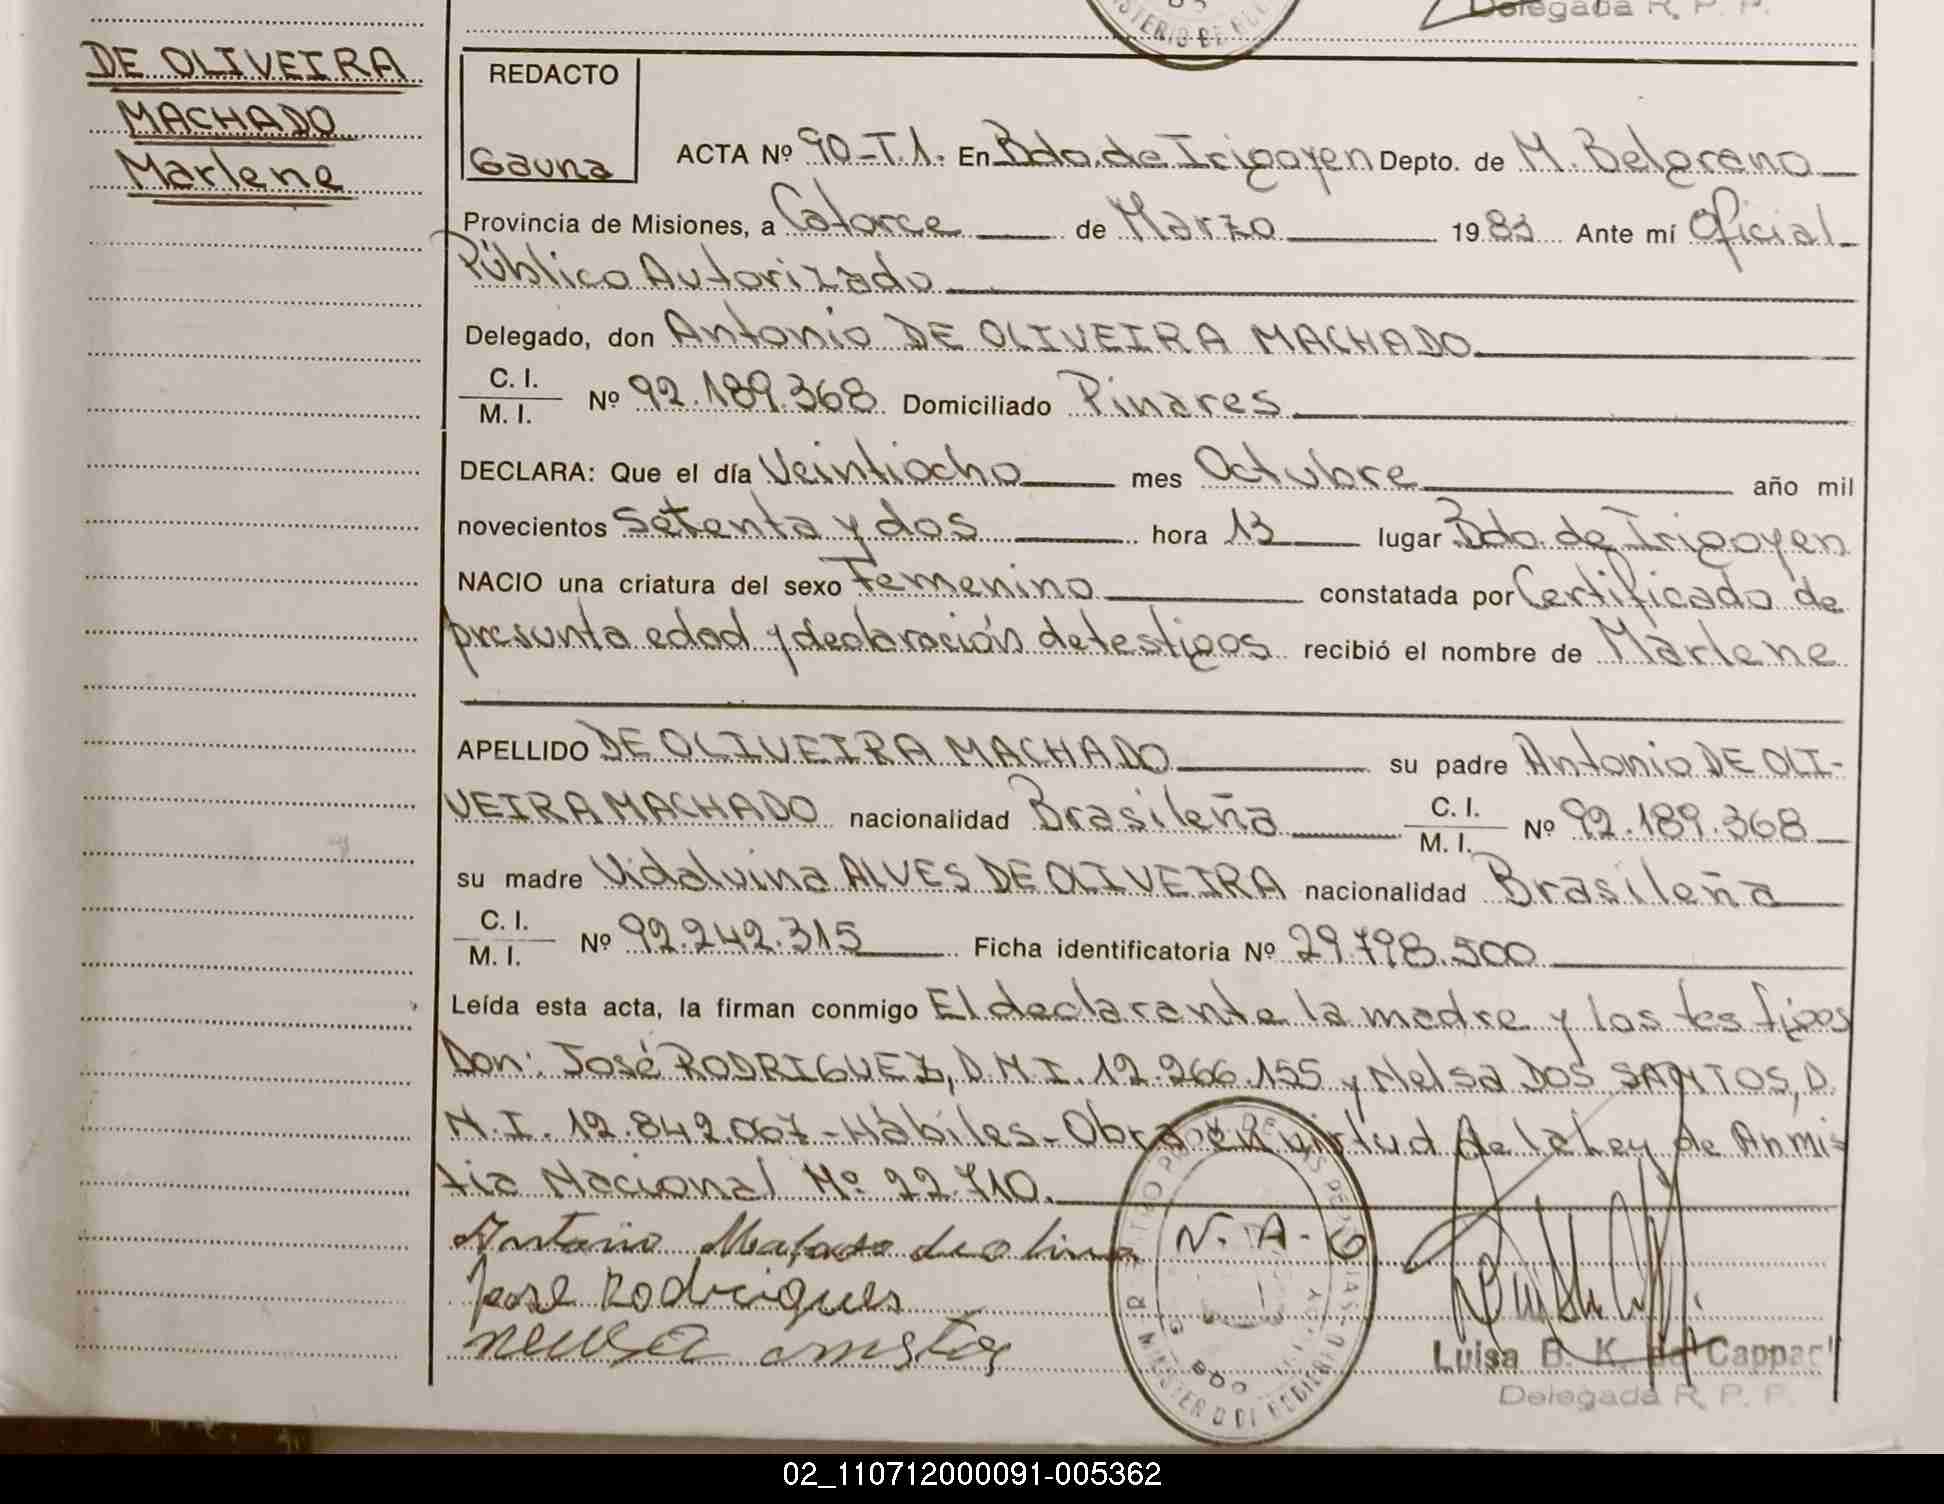 MINISTERIO DE
Delegada R. P. P.
DE OLIVEIRA
MACHADO
Marlene
REDACTO
Gauna
ACTA Nº 90-T.1. En Bdo. de Irigoyen Depto. de M. Belgrano
Provincia de Misiones, a Catorce de Marzo 1983 Ante mí Oficial
Público Autorizado
Delegado, don Antonio DE OLIVEIRA MACHADO
C. I.
M. I. Nº 92.189.368 Domiciliado Pinares
DECLARA: Que el día Veintiocho mes Octubre año mil
novecientos Setenta y dos hora 13 lugar Bdo. de Irigoyen
NACIO una criatura del sexo Femenino constatada por Certificado de
presunta edad y declaración de testigos recibió el nombre de Marlene
APELLIDO DE OLIVEIRA MACHADO su padre Antonio DE OLI-
VEIRA MACHADO nacionalidad Brasileña C. I. M. I. Nº 92.189.368
su madre Vidalvina ALVES DE OLIVEIRA nacionalidad Brasileña
C. I.
M. I. Nº 92.242.315 Ficha identificatoria Nº 29.798.500
Leída esta acta, la firman conmigo El declarante la madre y los testigos
Don: José RODRIGUEZ, D.N.I. 12.266.155 y Nelsa DOS SANTOS, D.
N.I. 12.842.067 - Hábiles - Obra en virtud de la Ley de Anmis
tia Nacional Nº 22.710.
Antonio
José Rodrigues
N. A. G
Luisa B. K. de Cappa
Delegada R. P. P.
02_110712000091-005362